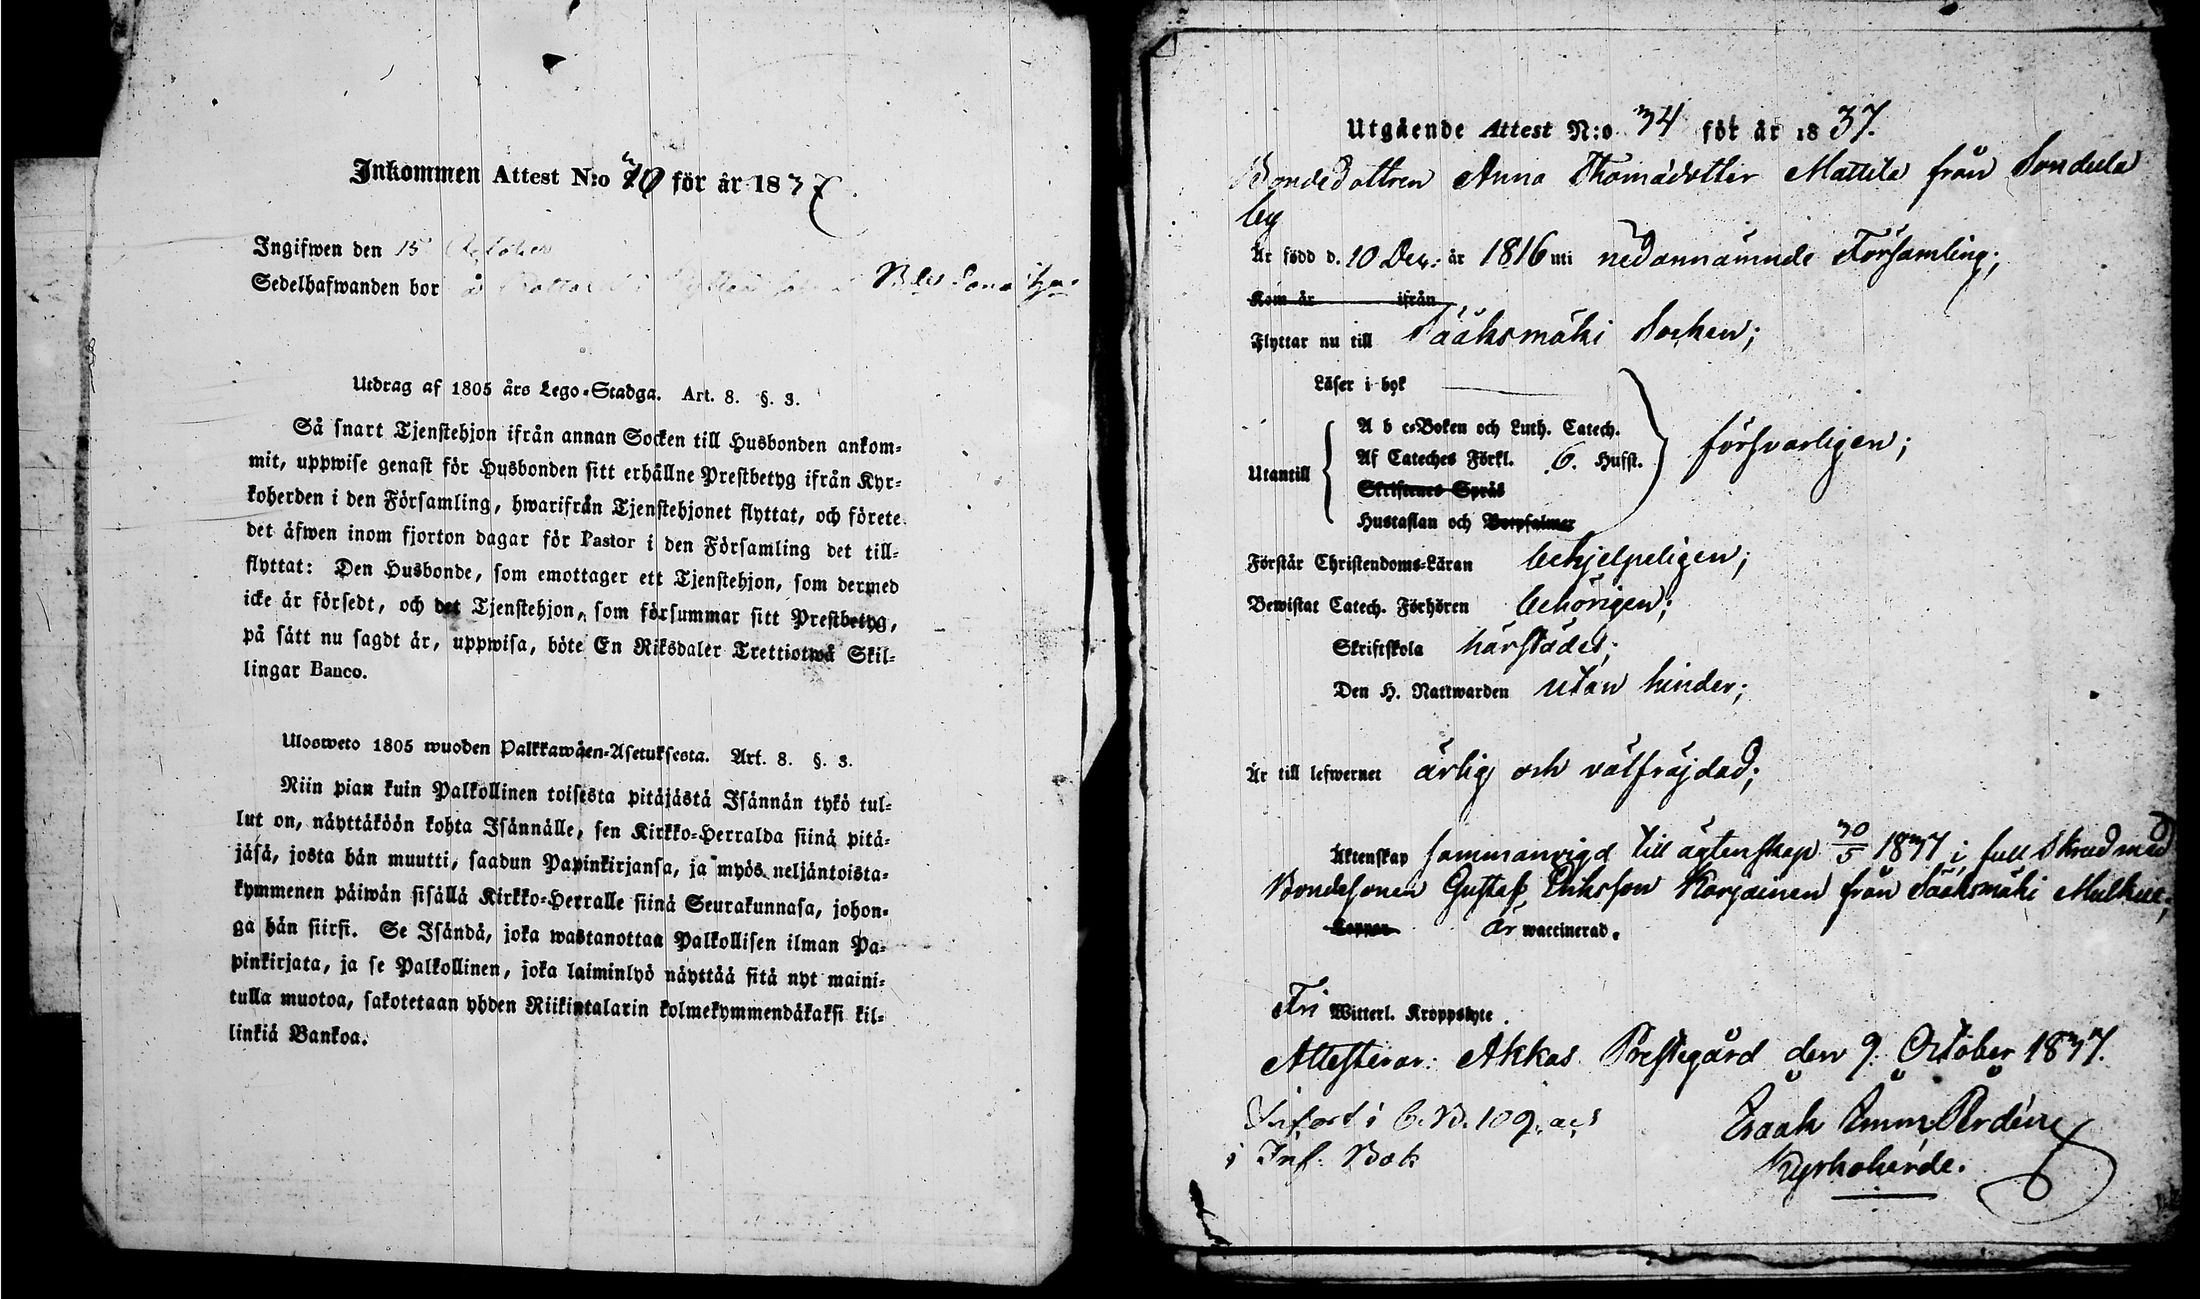 Inkommen Attest N:o 70 för år 1837.
Ingifwen den 15 October
Sedelhafwanden bor å
Utdrag af 1805 års Lego-Stadga. Art. 8. §. 3.
Så snart Tjenstehjon ifrån annan Socken till Husbonden ankom-
mit, uppwise genast för Husbonden sitt erhållne Prestbetyg ifrån Kyr-
koherden i den Församling, hwarifrån Tjenstehjonet flyttat, och förete
det äfwen inom fjorton dagar för Pastor i den Församling det till-
flyttat: Den Husbonde, som emottager ett Tjenstehjon, som dermed
icke är försedt, och det Tjenstehjon, som försummar sitt Prestbetyg,
på sätt nu sagdt är, uppwisa, böte En Riksdaler Trettiotwå Skil-
lingar Banco.
Ulosweto 1805 wuoden Palkkawäen-Asetuksesta. Art. 8. §. 3.
Niin pian kuin Palkollinen toisesta pitäjästä Isännän tykö tul-
lut on, näyttäköön kohta Isännälle, sen Kirkko-Herralda siinä pitä-
jäsä, josta hän muutti, saadun Papinkirjansa, ja myös neljäntoista-
kymmenen päiwän sisällä Kirkko-Herralle siinä Seurakunnasa, johon-
ga hän siirsi. Se Isändä, joka wastanottaa Palkollisen ilman Pa-
pinkirjata, ja se Palkollinen, joka laiminlyö näyttää sitä nyt maini-
tulla muotoa, sakotetaan yhden Riikintalarin kolmekymmendäkaksi kil-
linkiä Bankoa.
Utgående Attest N:o 34 för år 1837.
Bondedottren Anna Thomädotter Mattila från Sondula
by
Är född d. 10 Dec. år 1816 uti nedannämnde Församling;
Kom år ifrån
Flyttar nu till Sääksmäki Socken;
Läser i bok
Utantill
A b c-Boken och Luth. Catech.
Af Cateches Förkl. 6. Hufst.
Skriftenes Språk
Hustaflan och Botpsalmer
försvarligen;
Förstår Christendoms-Läran behjelpeligen;
Bewistat Catech. Förhören behörigen;
Skriftskola härstädes;
Den H. Nattwarden utan hinder;
Är till lefwernet ärlig och välfräjdad;
Äktenskap sammanvigd till ägtenskap 30/5 1837 i full skrud med
Bondesonen Gustaf Eriksson Karjainen från Sääksmäki
Koppor är waccinerad.
Fri Witterl. Kroppslyte.
Attesterar: Akkas Prestegård den 9. October 1837.
Infört i C. B. 109.
i Inf. Bok
Isaak Emm. Perdén
Kyrkoherde.